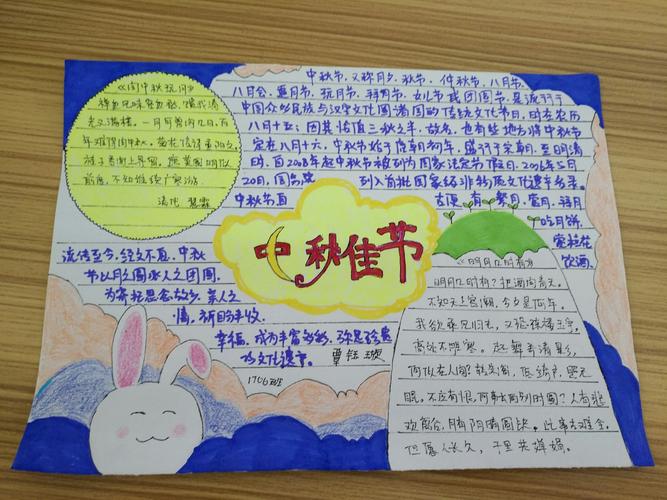 中秋节，又称月夕、秋节、仲秋节、八月节、
八月会、追月节、玩月节、拜月节、女儿节或团圆节，是流行于
中国众多民族与汉字文化圈诸国的传统文化节日，时在农历
八月十五；因其恰值三秋之半，故名，也有些地方将中秋节
定在八月十六。中秋节始于唐朝初年，盛行于宋朝，至明清
时，自2008年起中秋节被列为国家法定节假日。2006年5月
20日，国务院 列入首批国家级非物质文化遗产名录。
中秋节自古便有祭月、赏月、拜月
吃月饼、
赏桂花
饮酒
《闰中秋玩月》
禅边风味客边愁，馈我清
光又满楼。一月可曾闲几日，百
年难得闰中秋。菊花信待重阳久，
桂子香闻上界留。遮莫圆明似
前度，不知谁续广寒游。
清代
中秋佳节
流传至今，经久不息。中秋
节以月之圆兆人之团圆，
为寄托思念故乡，亲人之
情，祈盼丰收、
幸福，成为丰富多彩、弥足珍贵
的文化遗产。
1706班
《明月几时有》
明月几时有？把酒问青天。
不知天上宫阙，今夕是何年。
我欲乘风归去，又恐琼楼玉宇，
高处不胜寒。起舞弄清影，
何似在人间？转朱阁，低绮户，照无
眠。不应有恨，何事长向别时圆？人有悲
欢离合，月有阴晴圆缺。此事古难全。
但愿人长久，千里共婵娟。